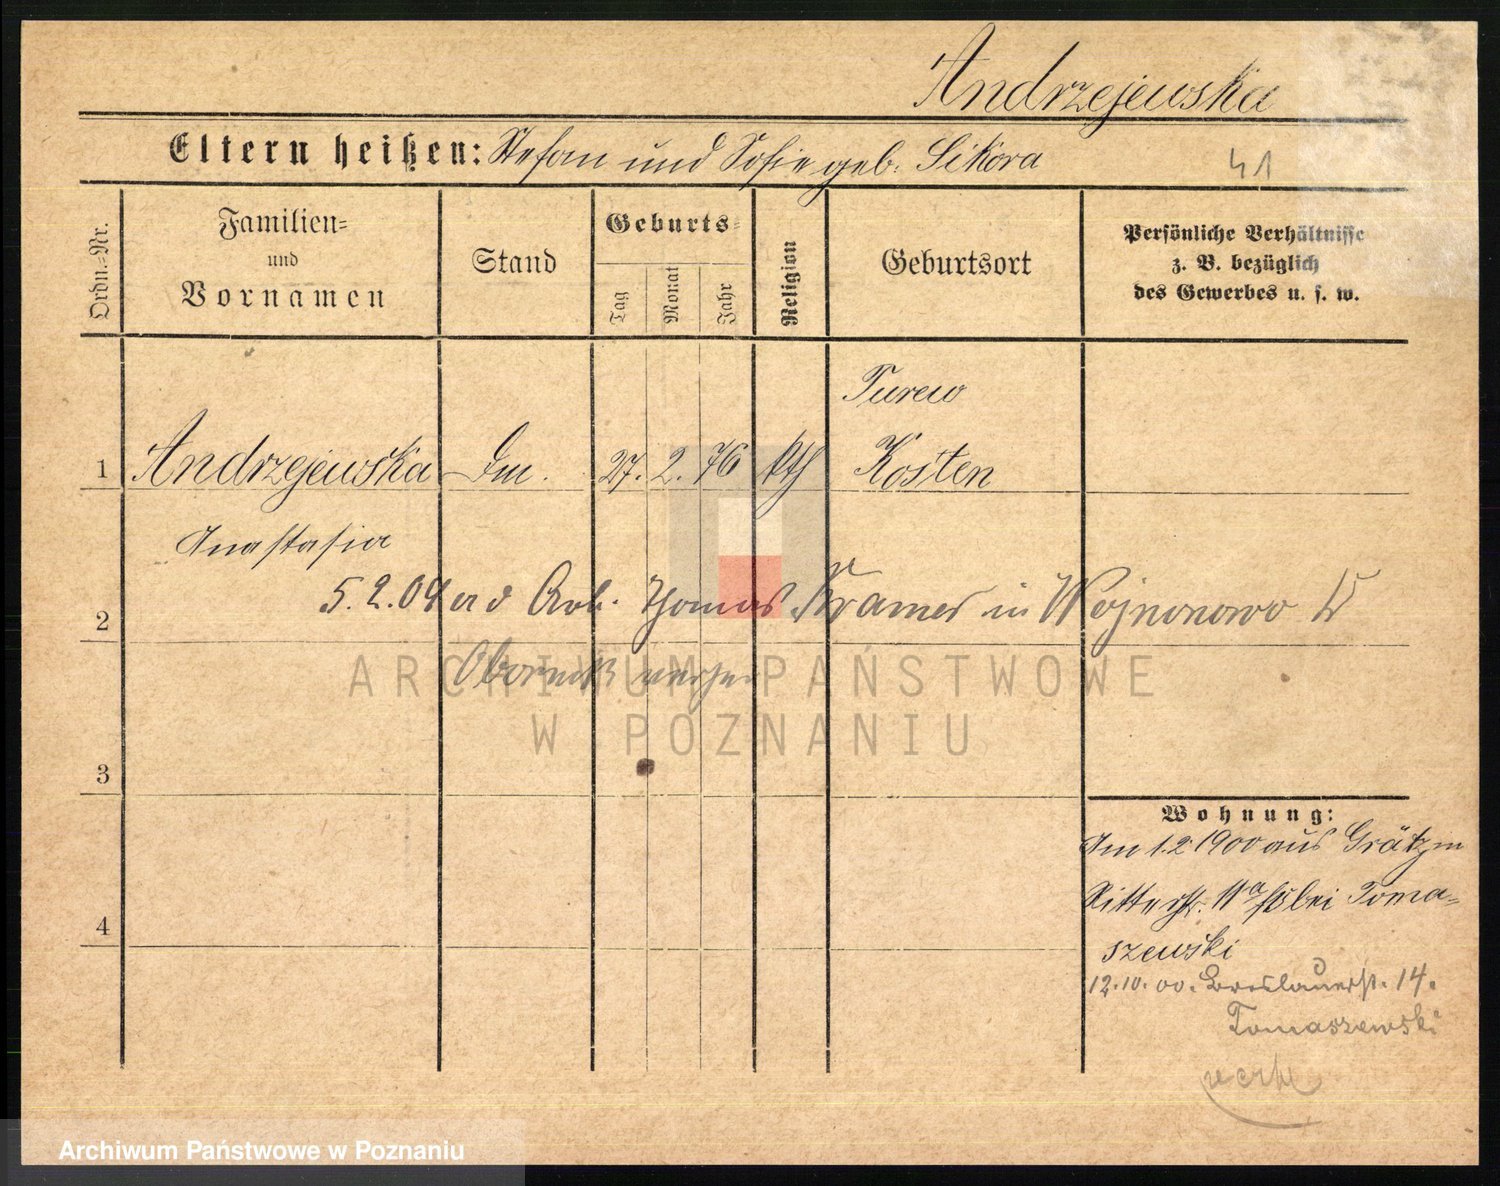 Andrzejewska
Eltern heißen: Stefan und Sofie geb. Sikora
41
Ordn.-Nr.
Familien-
und
Vornamen
Stand
Geburts-
Tag
Monat
Jahr
Religion
Geburtsort
Persönliche Verhältnisse
z. B. bezüglich
des Gewerbes u. s. w.
Turew
1 Andrzejewska Dm. 27. 2. 76 kth Kosten
Anastasia
5. 2. 04 a d Arb. Thomas Kramer in Wojnonowo
2
Obornik
ARCHIWUM PAŃSTWOWE
W POZNANIU
3
4
Wohnung:
Am 1.2.1900 aus Grätz in
Ritterstr. 11a bei Toma-
szewski
12.10.00. Breslauerst. 14.
Tomaszewski
verh
Archiwum Państwowe w Poznaniu